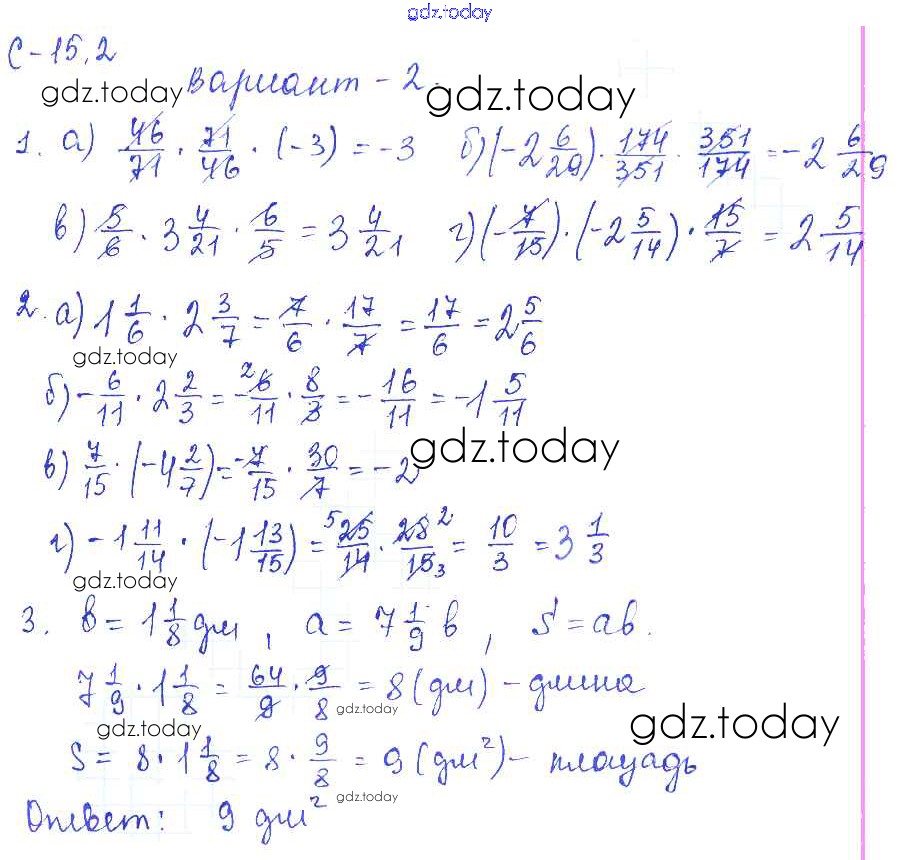 gdz.today
С-15.2
gdz.today Вариант - 2. gdz.today
1. а) 46/71 · 71/46 · (-3) = -3 б) (-2 6/29) · 174/351 · 351/174 = -2 6/29
в) 5/6 · 3 4/21 · 6/5 = 3 4/21 г) (-7/15) · (-2 5/14) · 15/7 = 2 5/14
2. а) 1 1/6 · 2 3/7 = 7/6 · 17/7 = 17/6 = 2 5/6
gdz.today
б) -6/11 · 2 2/3 = -6/11 2 · 8/3 = -16/11 = -1 5/11
в) 7/15 · (-4 2/7) = -7/15 · 30/7 = -2 gdz.today
г) -1 11/14 · (-1 13/15) = 5 25/14 · 28/15 2 3 = 10/3 = 3 1/3
gdz.today
3. b = 1 1/8 дм, a = 7 1/9 b, S = ab.
7 1/9 · 1 1/8 = 64/9 · 9/8 = 8 (дм) - длина
gdz.today
gdz.today gdz.today
S = 8 · 1 1/8 = 8 · 9/8 = 9 (дм²) - площадь
gdz.today
Ответ: 9 дм²